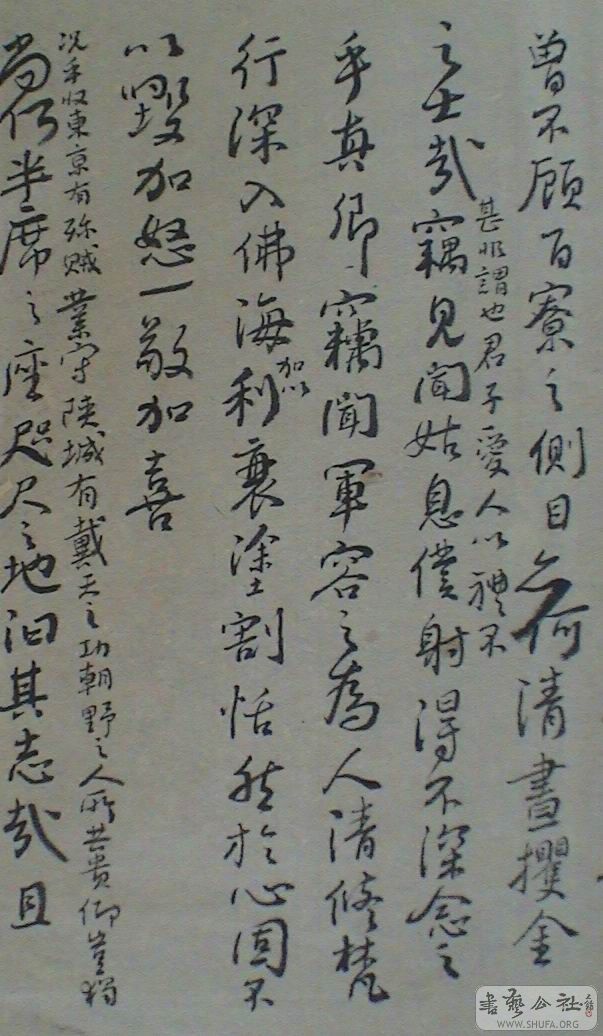 曾不顧百寮之側目亦何清晝攫金
甚非謂也君子愛人以禮不
之士哉竊見聞姑息僕射得不深念之
乎真卿竊聞軍容之為人清修梵
加以
行深入佛海利衰塗割恬然於心固不
以毀加怒一敬加喜
況乎收東京有殄賊業守陝城有戴天之功朝野之人所共貴仰豈獨
尚何半席之座咫尺之地汩其志哉且
書藝公社
WWW.SHUFA.ORG